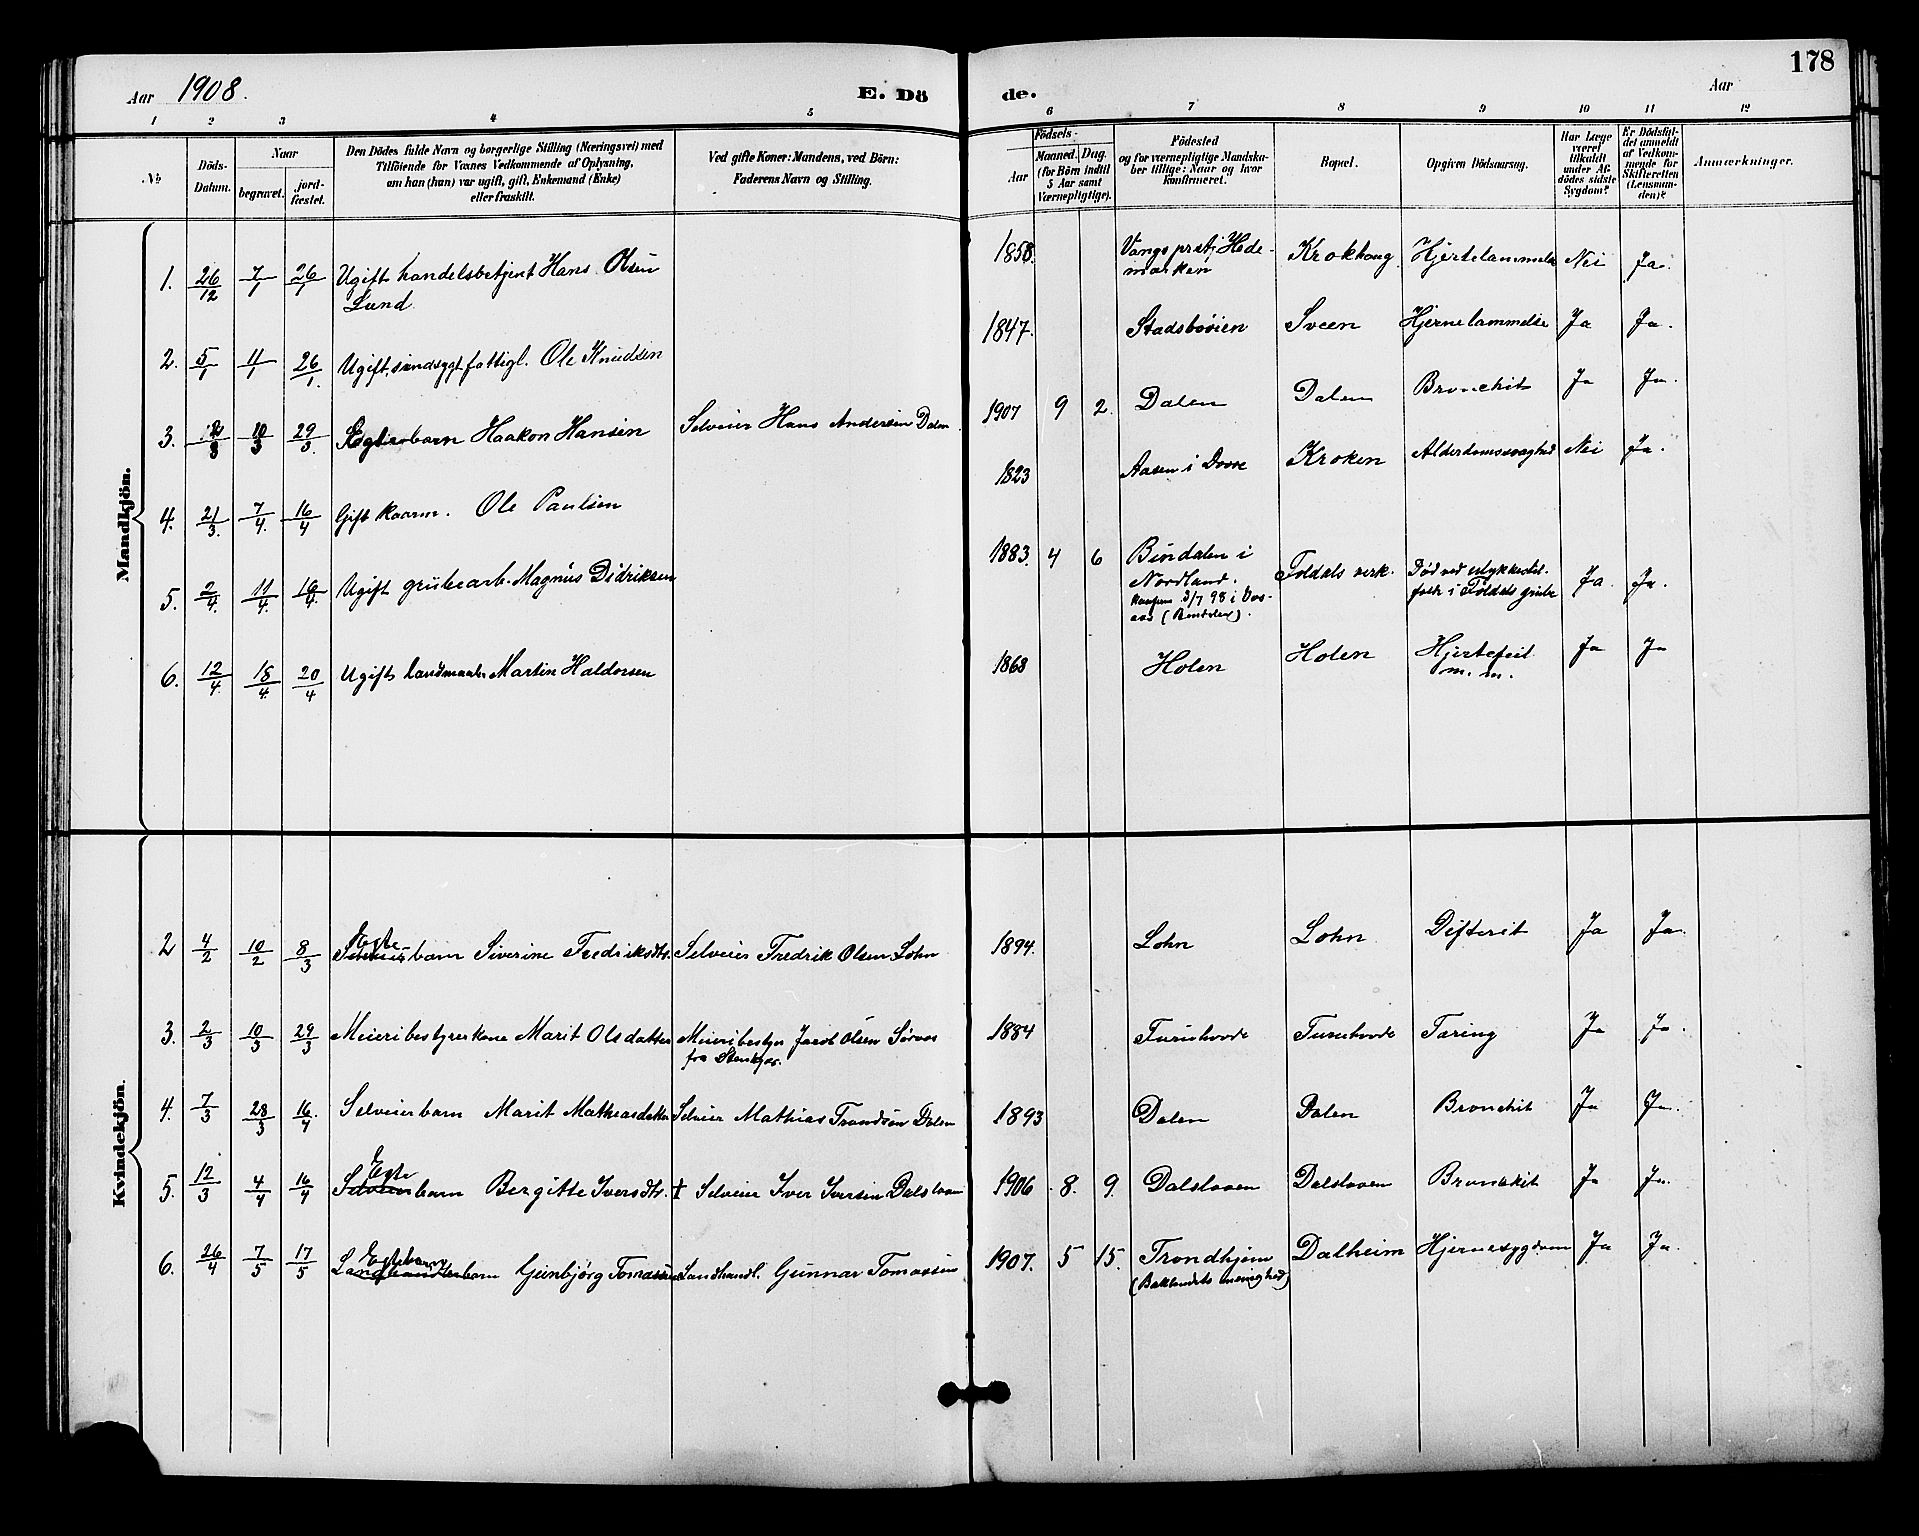 178
Aar 1908.
E. Dö
de.
Aar
1 2 3 4 5 6 7 8 9 10 11 12
No
Döds-Datum.
Naar
begravet.
jord-fæstet.
Den Dödes fulde Navn og borgerlige Stilling (Næringsvei) med
Tilföiende for Voxnes Vedkommende af Oplysning,
om han (hun) var ugift, gift, Enkemand (Enke)
eller fraskilt.
Ved gifte Koner: Mandens, ved Börn:
Faderens Navn og Stilling.
Födsels-
Aar
Maaned. Dag.
(for Börn indtil
5 Aar samt
Værnepligtige).
Födested
og for værnepligtige Mandska-
ber tillige: Naar og hvor
konfirmeret.
Bopæl.
Opgiven Dödsaarsag.
Har Læge
været
tilkaldt
under Af-
dödes sidste
Sygdom?
Er Dödsfal-
det anmeldt
af Vedkom-
mende for
Skifteretten
(Lensman-
den)?
Anmærkninger.
Mandkjön.
1. 26/12 7/1 26/1 Ugift handelsbetjent Hans Olsen
Lund
1858. Vangs prstj. Hede-
marken
Krokhaug Hjertelammelse Nei Ja.
2. 5/1 11/1 26/1. Ugift, sindssygt fattigl. Ole Knudsen
1847. Stadsbøien Sveen Hjernelammelse Ja Ja.
3. 10/3 29/3. Ægtebarn Haakon Hansen Selveier Hans Andersen Dalen
1907 9 2. Dalen Dalen Bronchit Ja Ja.
4. 21/3. 7/4. 16/4 Gift kaarm. Ole Paulsen
1823 Aasen i Dovre Kroken Alderdomssvaghed Nei Ja.
5. 2/4. 11/4. 16/4. Ugift grubearb. Magnus Didriksen
1883. 4 6 Bindalen i
Nordland.
3/7 98 i
(Bindalen).
Foldals verk. Død ved ulykkestil-
fælde i Foldals grube
Ja. Ja.
6. 12/4. 18/4. 20/4 Ugift Martin Haldorsen
1868 Holen Holen Hjertefeil
m. m.
Ja Ja
Kvindekjön.
2 4/2 10/2 8/3 Ægte
Selveierbarn Siverine Fredriksdtr. Selveier Fredrik Olsen Lohn
1894. Lohn Lohn Difterit Ja Ja.
3. 2/3 10/3 29/3 Meieribestyrerkone Marit Olsdatter Meieribestyr Jacob Olsen
fra Stenkjær.
1884 Furuhovde Furuhovde Tæring Ja Ja.
4. 7/3 28/3 16/4. Selveierbarn Marit Mathiasdatter Selveier Mathias Trondsen Dalen
1893 Dalen Dalen Bronchit Ja Ja.
5. 12/3 4/4 16/4 Ægte
Selveierbarn Bergitte Iversdtr. Selveier Iver Iversen Dalsloen
1906 8. 9. Dalsloen Dalsloen Bronckit Ja Ja.
6. 26/4 7/5 17/5 Ægtebarn
Landhandlerbarn Gunbjørg Tomassen Landhandl. Gunnar Tomassen
1907. 5 15. Trondhjem
(Baklandets menighed)
Dalheim Hjernesygdom Ja Ja.